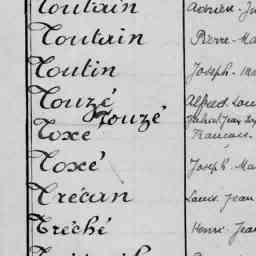 Toutain
Toutain Pierre-Ma
Toutin Joseph-
Touzé Alfred Lou
Touzé
Toxé Francois
Toxé Joseph. Ma
Trécan Louis Jean
Tréché Henri Jea